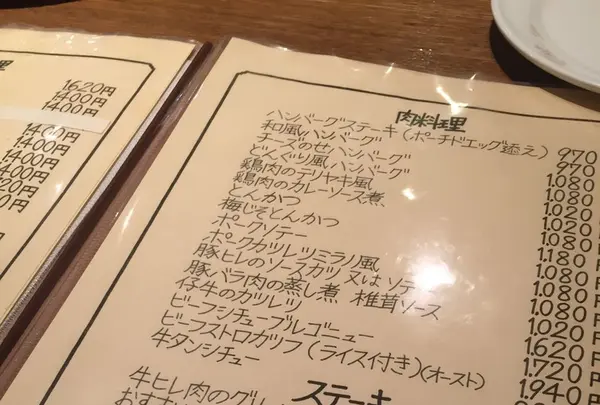 理
1620円
1400円
1400円
1400円
1400円
1400円
肉料理
ハンバーグステーキ(ポーチドエッグ添え)
和風ハンバーグ
チーズのせハンバーグ
どんぐり風ハンバーグ
鶏肉のテリヤキ風
鶏肉のカレーソース煮、
とんかつ
梅じそとんかつ
ポークソテー
ポークカツレツミラノ風
豚ヒレのソースカツ又はソテ
豚バラ肉の蒸し煮 椎茸ソース
仔牛のカツレツ
ビーフシチューブルゴーニュー
ビーフストロガノフ(ライス付き)(オースト)
牛タンシチュー
970
970
1.080
1.080
1.020
1.020
1.080
1.180
1.080
1.080
1.020
1.620
1.720
1.940
ステーキ
牛ヒレ肉のグリ
おすす